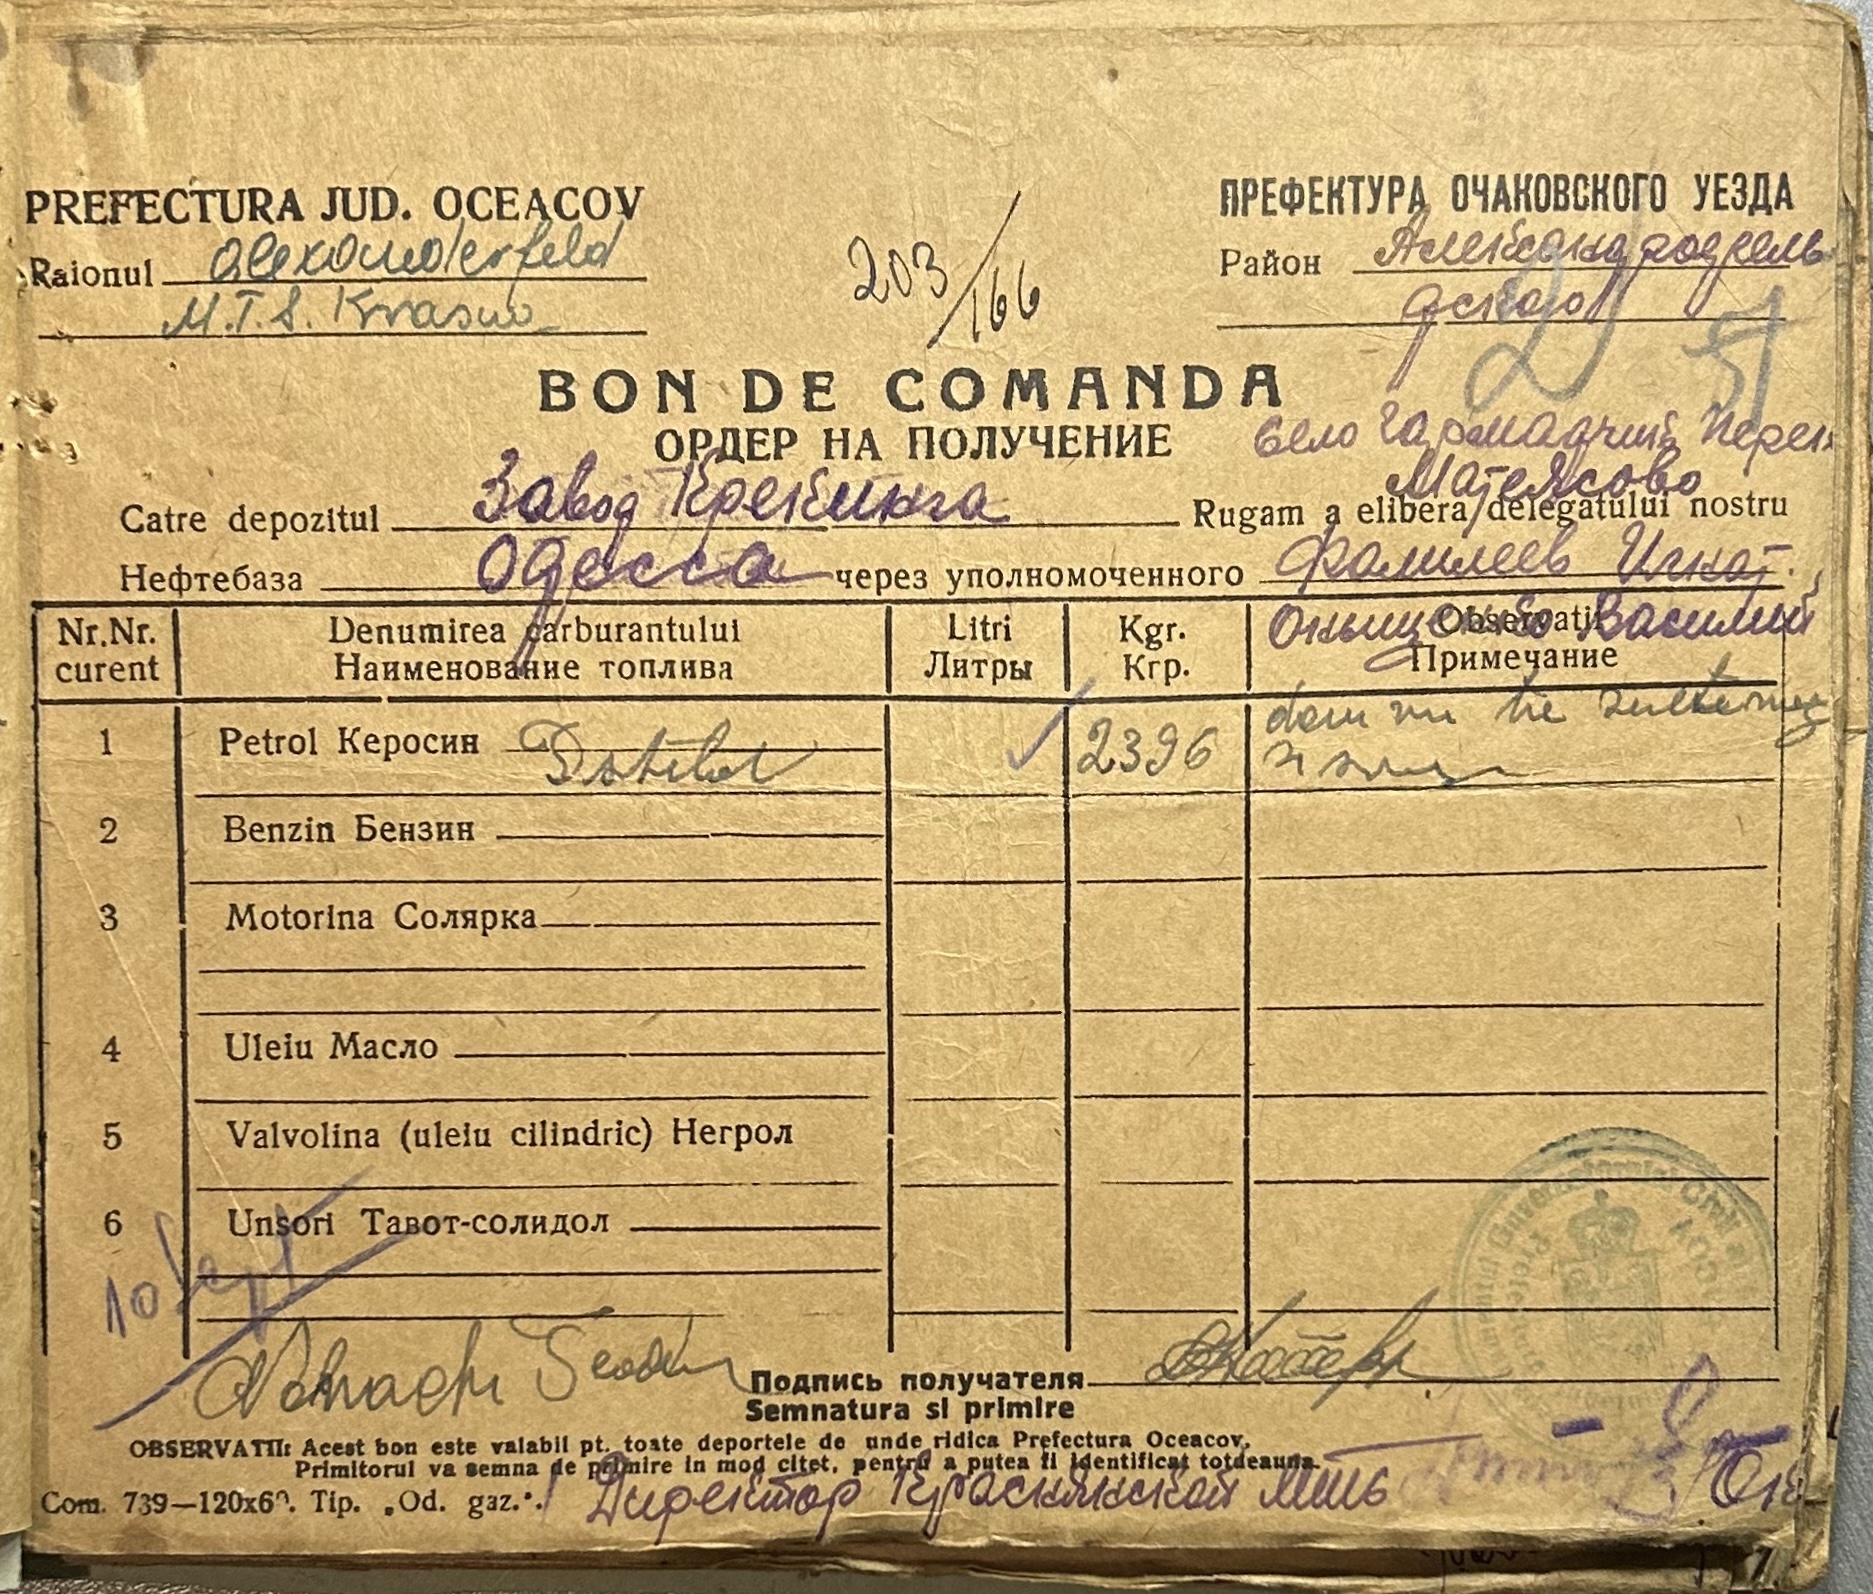 PREFECTURA JUD. OCEACOV
Raionul Alexanderfeld
M.T.S. Krasno
203/166
ПРЕФЕКТУРА ОЧАКОВСКОГО УЕЗДА
Район
BON DE COMANDA
ОРДЕР НА ПОЛУЧЕНИЕ
село
Матясово
Catre depozitul Завод Крекинга Rugam a elibera delegatului nostru
Нефтебаза Одесса через уполномоченного Фалилеев Игнат.
Онищенко Василий
Nr.Nr. curent
Denumirea carburantului
Наименование топлива
Litri
Литры
Kgr.
Кгр.
Observatii
Примечание
1 Petrol Керосин 2396
2 Benzin Бензин
3 Motorina Солярка
4 Uleiu Масло
5 Valvolina (uleiu cilindric) Негрол
6 Unsori Тавот-солидол
10 Sept
Подпись получателя
Semnatura si primire
OBSERVATII: Acest bon este valabil pt. toate deportele de unde ridica Prefectura Oceacov.
Primitorul va semna de primire in mod citet, pentru a putea fi identificat totdeauna.
Com. 739—120x60. Tip. „Od. gaz.“. Директор Краснянской мтс